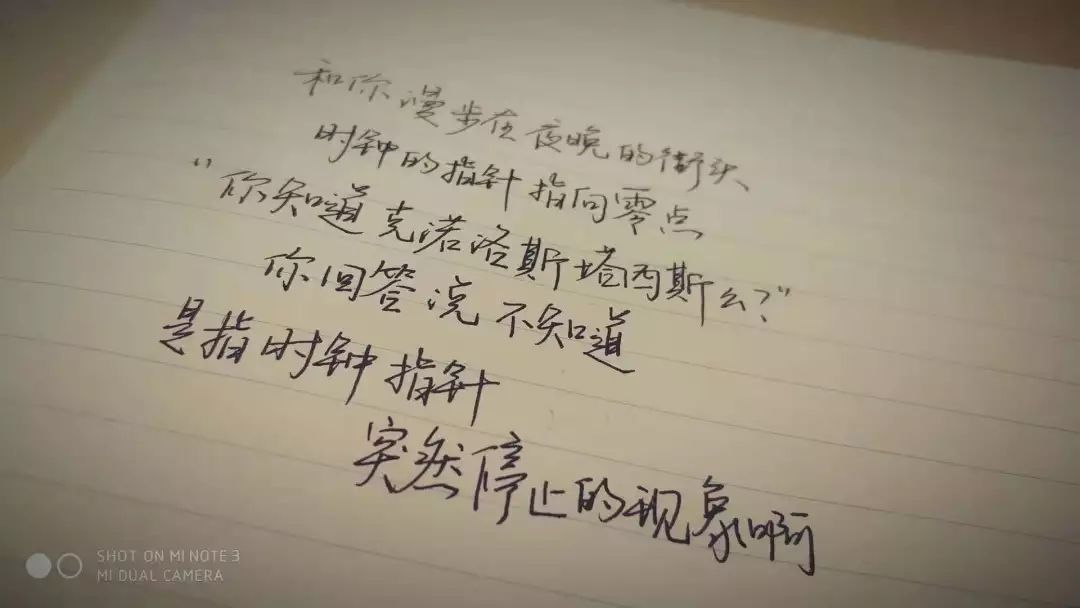 和你漫步在夜晚的街头
时钟的指针指向零点
“你知道克诺洛斯塔西斯么?”
你回答说不知道
是指时钟指针
突然停止的现象啊
SHOT ON MI NOTE 3
MI DUAL CAMERA